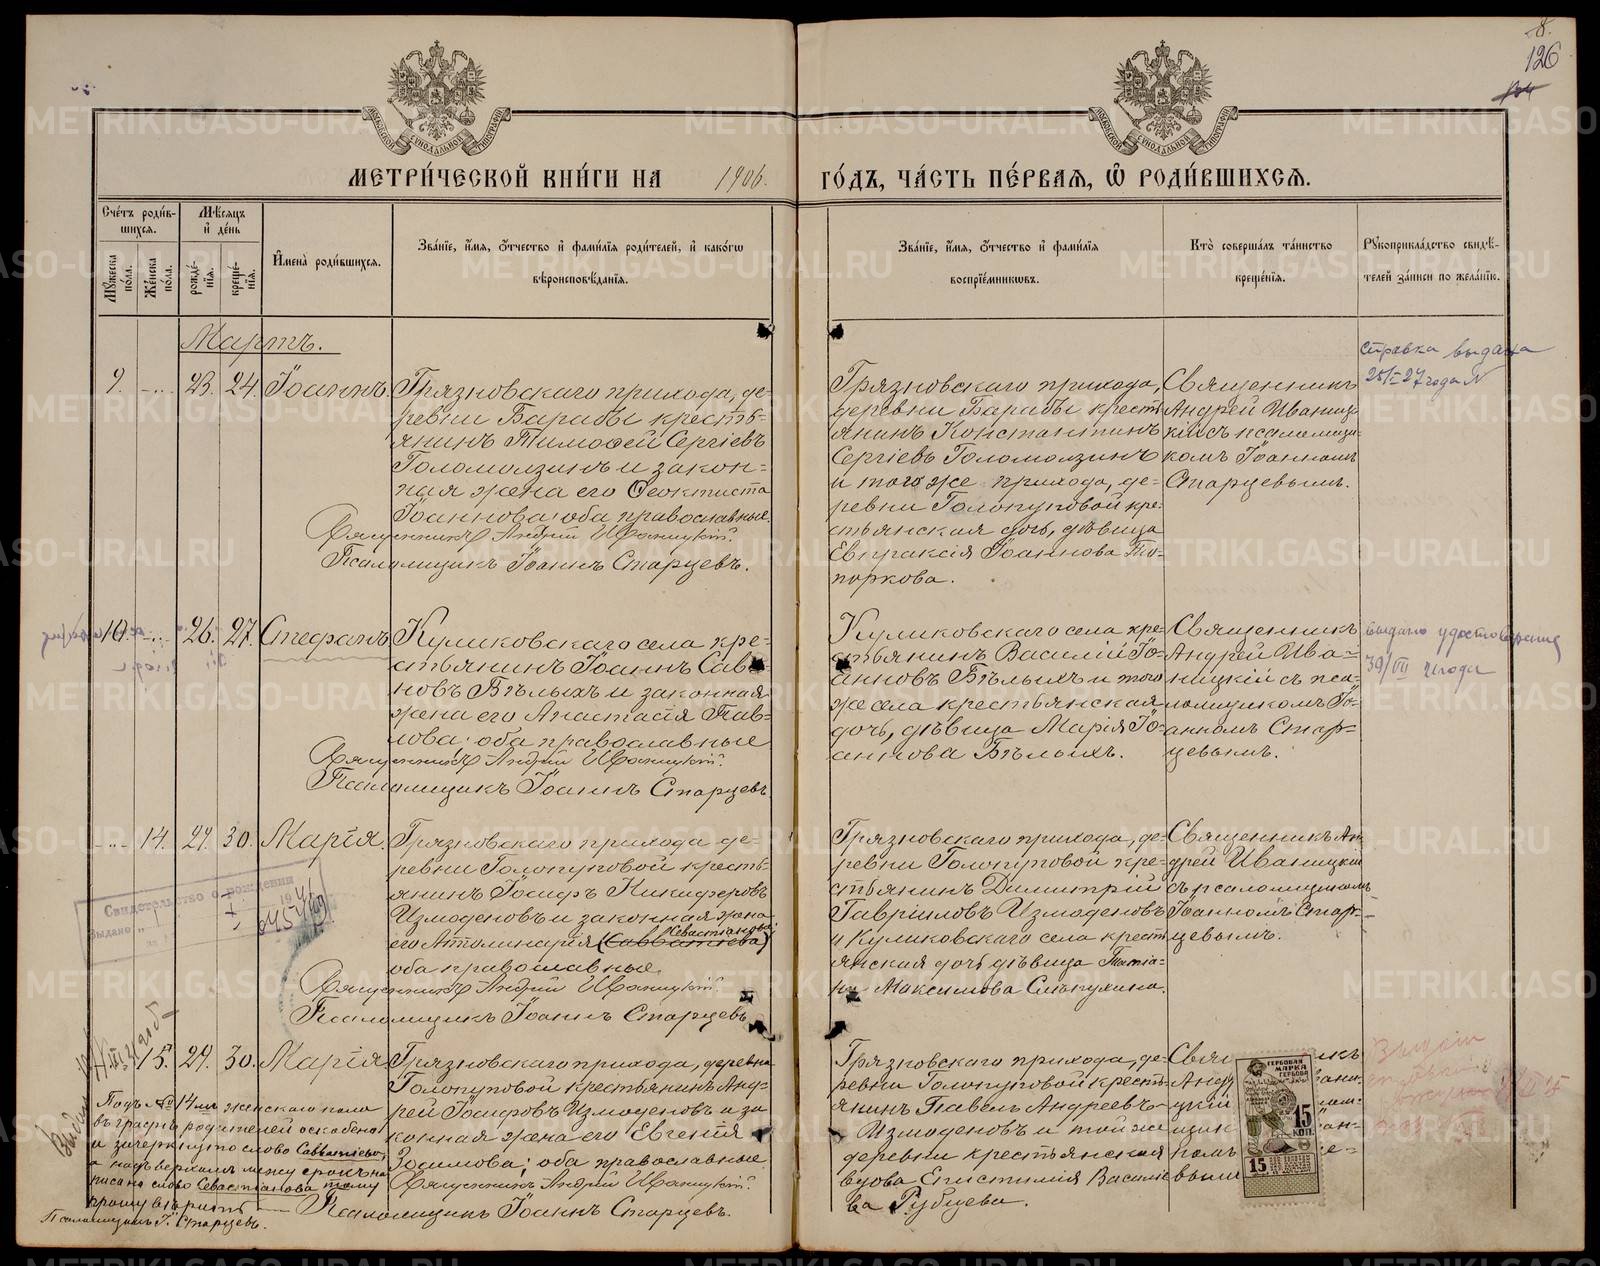 8.
126
МЕТРИ́ЧЕСКОЙ КНИ́ГИ НА 1906. ГО́ДЪ, ЧА́СТЬ ПЕ́РВАЯ, Ѡ҆ РОДИ́ВШИХСЯ.
Сче́тъ роди́в-
шихся.
Му́жеска по́ла.
Же́нска по́ла.
Мѣ́сяцъ
и҆ де́нь
рожде́-
нїя.
креще́-
нїя.
И҆мена̀ роди́вшихся.
Зва́нїе, и҆́мя, ѻ҆́тчество и҆ фами́лїя роди́телей, и҆ како́гѡ
вѣроисповѣ́данїя.
Зва́нїе, и҆́мя, ѻ҆́тчество и҆ фами́лїя
воспрїе́мникѡвъ.
Кто̀ соверша́лъ та́инство
креще́нїя.
Рꙋкоприкла́дство свидѣ́-
телей за́писи по жела́нїю.
Мартъ.
9.
23. 24.
Іоаннъ.
Грязновскаго прихода, де-
ревни Барабы кресть-
янинъ Тимофей Сергіевъ
Голомолзинъ и закон-
ная жена его Ѳеоктиста
Іоаннова; оба православные.
Священникъ Андрей Иваницкій.
Псаломщикъ Іоаннъ Старцевъ.
Грязновскаго прихода,
деревни Барабы кресть-
янинъ Константинъ
Сергіевъ Голомолзинъ
и того же прихода, де-
ревни Голопуповой кре-
стьянская дочь, дѣвица
Евпраксія Іоаннова То-
поркова.
Священникъ
Андрей Иваниц-
кій съ псаломщи-
комъ Іоанномъ
Старцевымъ.
Справка выдана
25/I-27 года №
10.
26. 27.
Стефанъ
Куликовскаго села кре-
стьянинъ Іоаннъ Сав-
новъ Бѣлыхъ и законная
жена его Анастасія Пав-
лова; оба православные
Священникъ Андрей Иваницкій.
Псаломщикъ Іоаннъ Старцевъ
Куликовскаго села кре-
стьянинъ Василій Іо-
анновъ Бѣлыхъ и того
же села крестьянская
дочь, дѣвица Марія Іо-
аннова Бѣлыхъ.
Священникъ
Андрей Ива-
ницкій съ пса-
ломщикомъ Іо-
анномъ Стар-
цевымъ.
выдано удостоверение
года
14.
29. 30.
Марія.
Грязновскаго прихода де-
ревни Голопуповой кресть-
янинъ Іосифъ Никифоровъ
Измоденовъ и законная жена
Севастіанова;
его Аполинарія (Савватіева)
оба православные.
Священникъ Андрей Иваницкій.
Псаломщикъ Іоаннъ Старцевъ
Грязновскаго прихода, де-
ревни Голопуповой кре-
стьянинъ Димитрій
Гавріиловъ Измоденовъ
и Куликовскаго села кресть-
янская дочь дѣвица Татіа-
на Максимова Слѣпухина.
Священникъ Ан-
дрей Иваницкій
съ псаломщикомъ
Іоанномъ Стар-
цевымъ.
Свидетельство о рождении
Выдано
15.
29. 30.
Марія
Грязновскаго прихода, деревни
Голопуповой крестьянинъ Анд-
рей Іосифовъ Измоденовъ и за
конная жена его Евгенія
Зосимова; оба православные.
Священникъ Андрей Иваницкій.
Псаломщикъ Іоаннъ Старцевъ.
Грязновскаго прихода, де-
ревни Голопуповой кресть-
янинъ Павелъ Андреевъ
Измоденовъ и той же
деревни крестьянская
вдова Епистимія Василіе
ва Рубцева.
Подъ № 14 мъ женскаго пола
въ графѣ родителей оскоблено
и зачеркнуто слово Савватіева,
а надъ верхомъ между строкъ на
писано слово Севастіанова тому
прошу вѣрить
Псаломщикъ І. Старцевъ.
ГЕРБОВАЯ
МАРКА
15
КОП.
15
METRIKI.GASO-URAL.RU